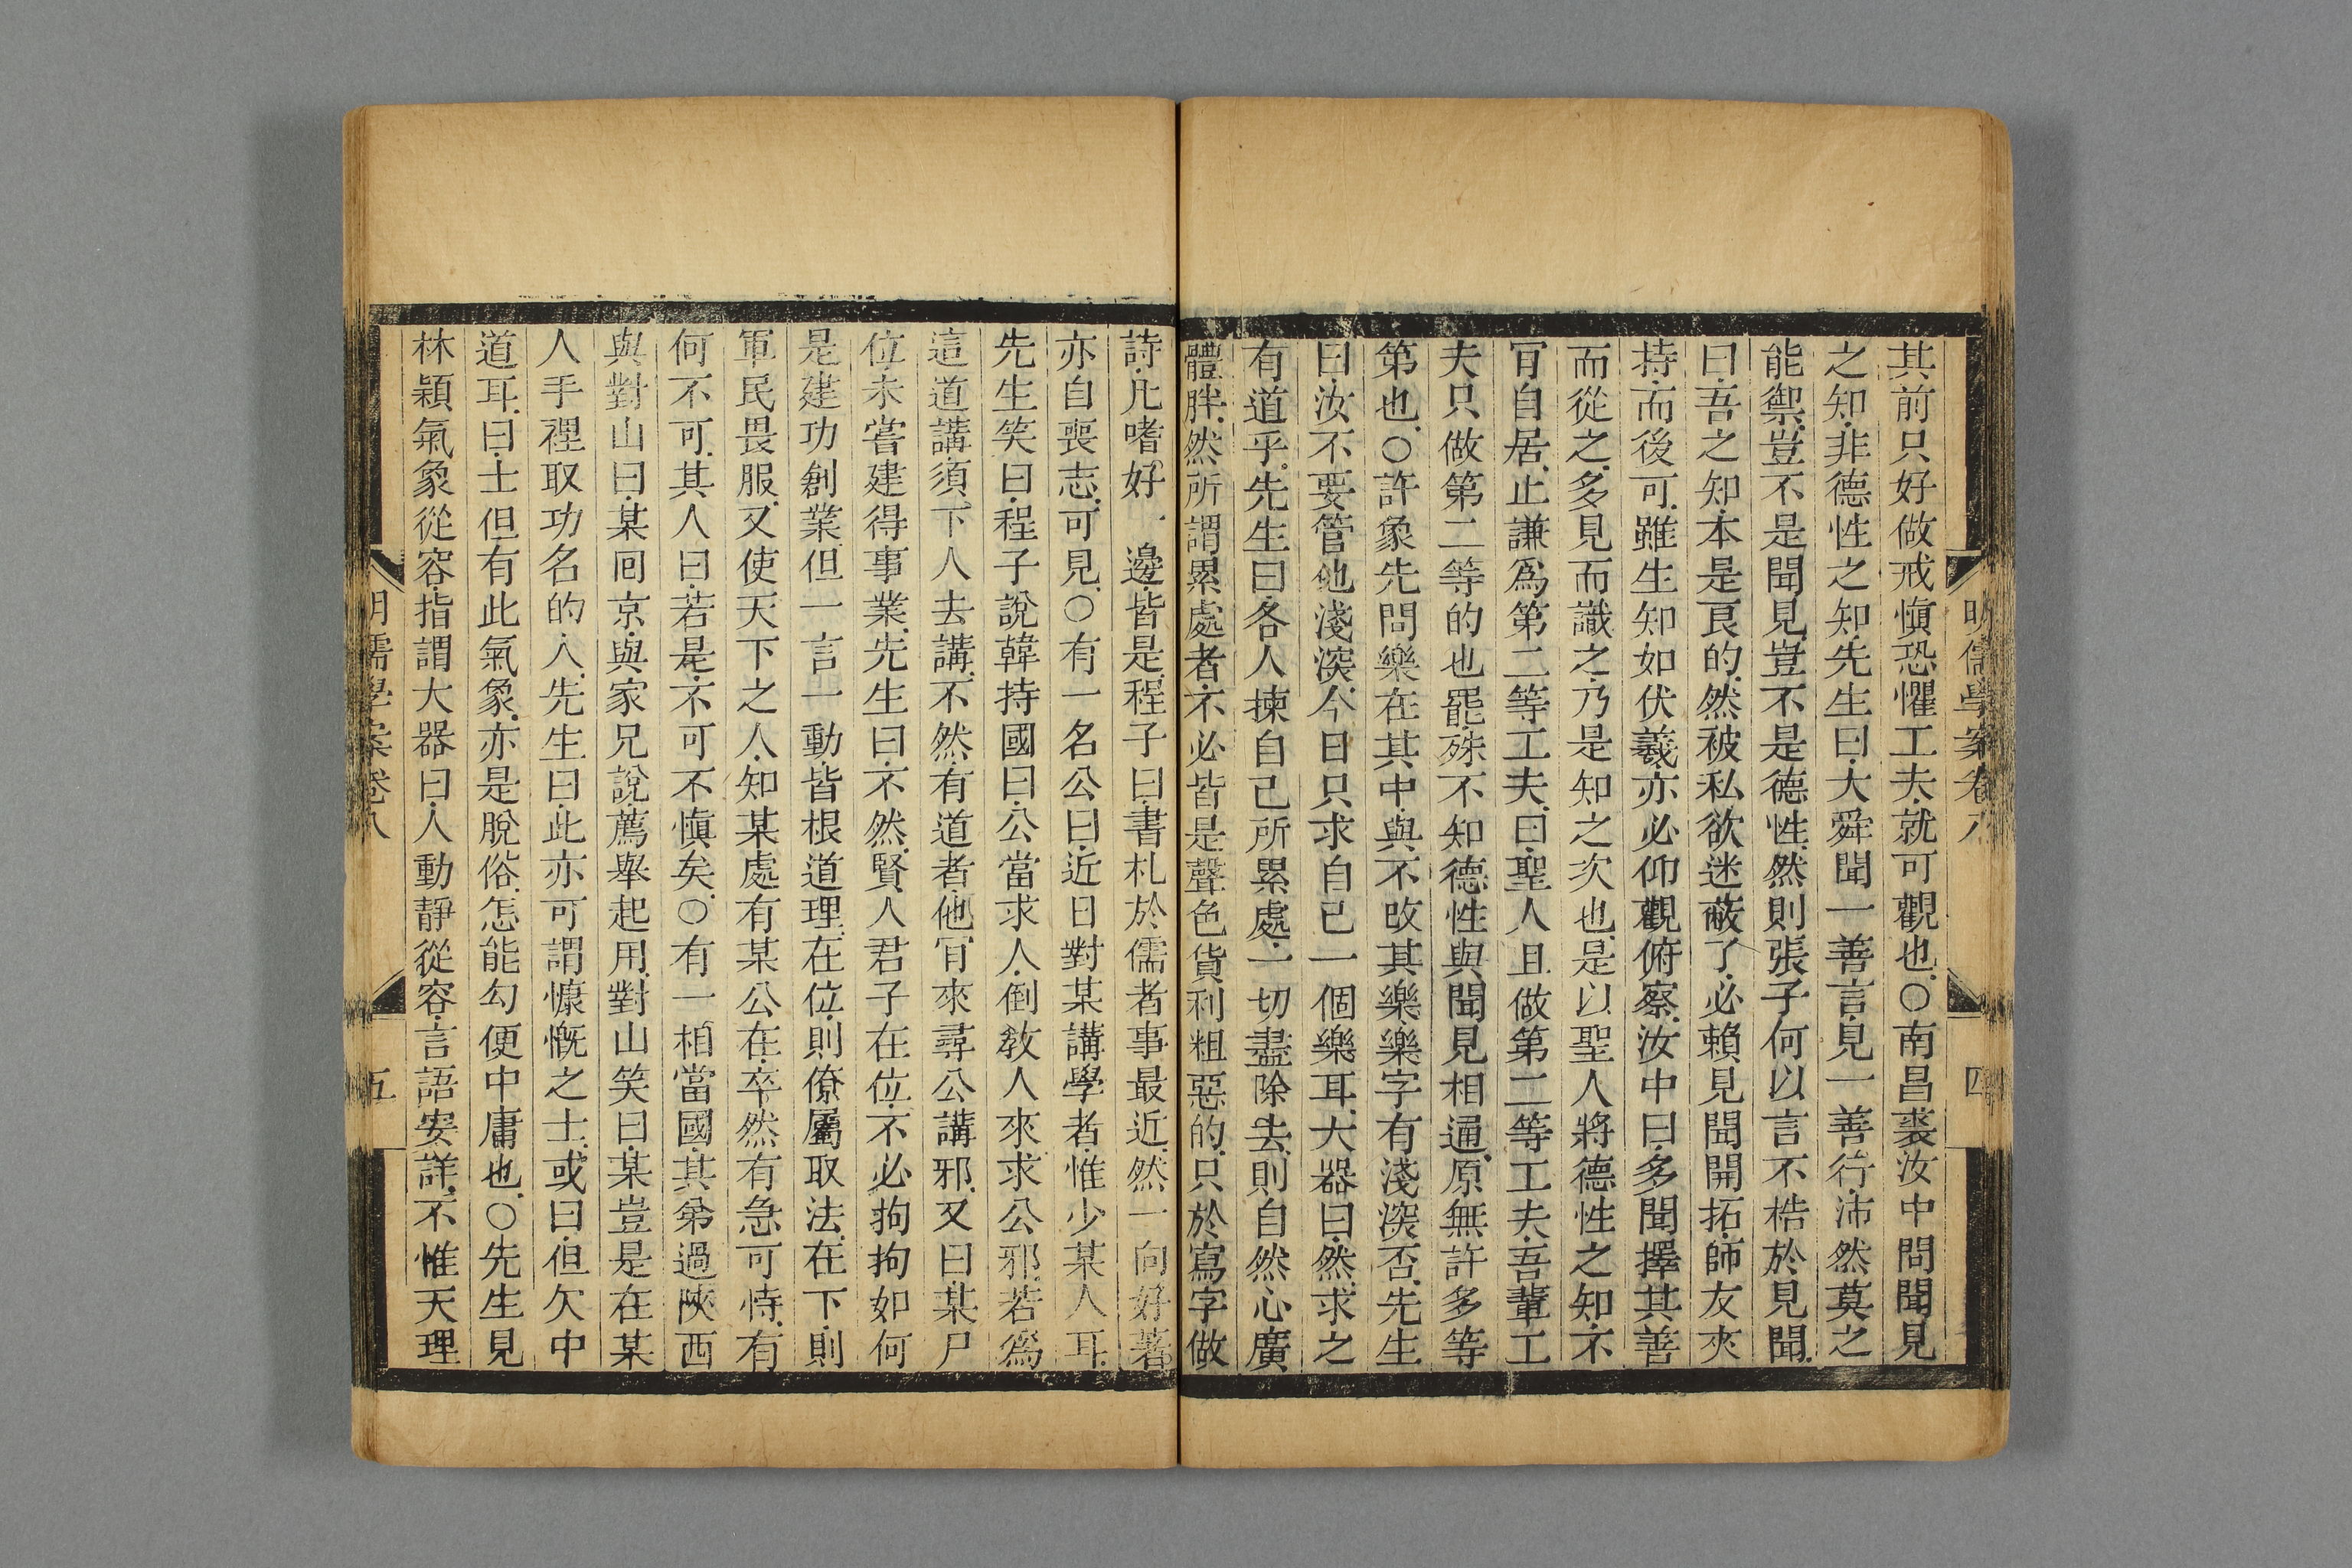 明儒學案卷八 四
其前只好做戒慎恐懼工夫就可觀也○南昌裘汝中問聞見
之知非德性之知先生曰大舜聞一善言見一善行沛然莫之
能禦豈不是聞見豈不是德性然則張子何以言不梏於見聞
曰吾之知本是良的然被私欲迷蔽了必賴見聞開拓師友夾
持而後可雖生知如伏羲亦必仰觀俯察汝中曰多聞擇其善
而從之多見而識之乃是知之次也是以聖人將德性之知不
肎自居止謙爲第二等工夫曰聖人且做第二等工夫吾輩工
夫只做第二等的也罷殊不知德性與聞見相通原無許多等
第也○許象先問樂在其中與不攺其樂樂字有淺深否先生
曰汝不要管他淺深今日只求自己一個樂耳大器曰然求之
有道乎先生曰各人揀自己所累處一切盡除去則自然心廣
體胖然所謂累處者不必皆是聲色貨利粗惡的只於寫字做
詩凡嗜好一邊皆是程子曰書札於儒者事最近然一向好著
亦自喪志可見○有一名公曰近日對某講學者惟少某人耳
先生笑曰程子說韓持國曰公當求人倒教人來求公邪若爲
這道講須下人去講不然有道者他肎來尋公講邪又曰某尸
位未嘗建得事業先生曰不然賢人君子在位不必拘拘如何
是建功創業但一言一動皆根道理在位則僚屬取法在下則
軍民畏服又使天下之人知某處有某公在卒然有急可恃有
何不可其人曰若是不可不慎矣○有一相當國其弟過陝西
與對山曰某回京與家兄說薦舉起用對山笑曰某豈是在某
人手裡取功名的人先生曰此亦可謂慷慨之士或曰但欠中
道耳曰士但有此氣象亦是脫俗怎能勾便中庸也○先生見
林穎氣象從容指謂大器曰人動靜從容言語安詳不惟天理
明儒學案卷八 五